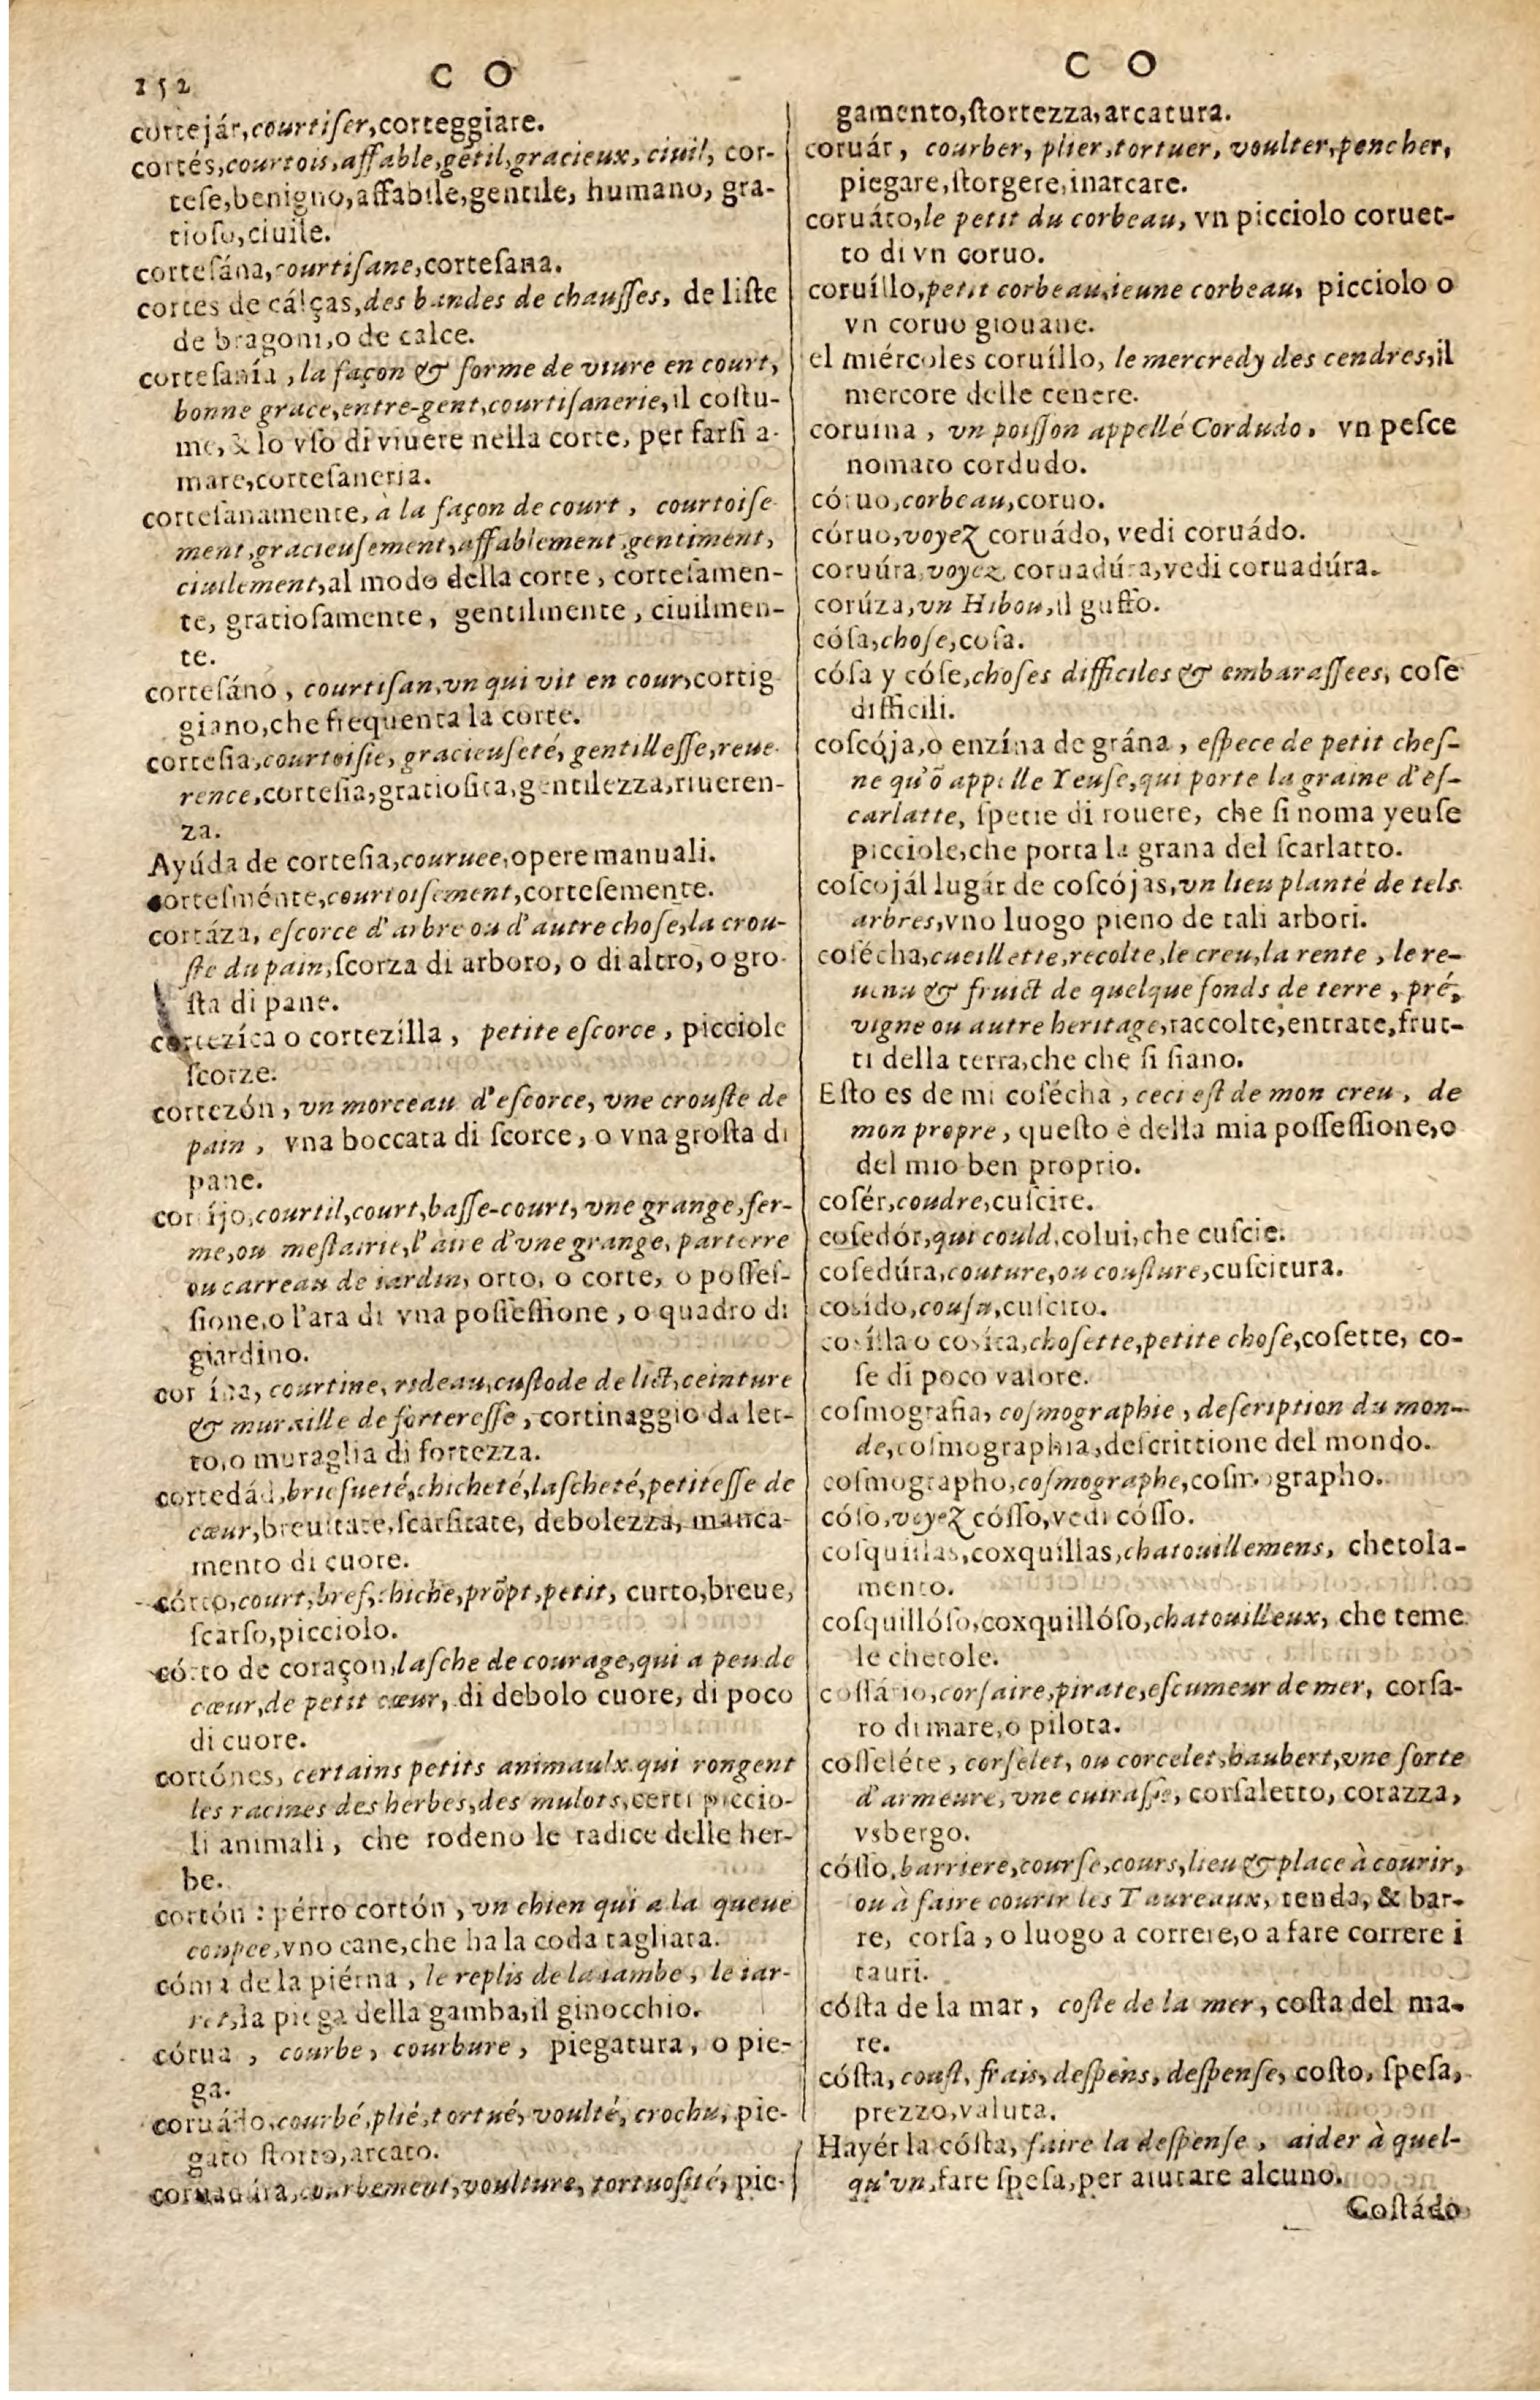 252
C O
C O
cortejár,courtiſer,corteggiare.
cortés,courtois,affable,gẽtil,gracieux,ciuil, cor-
teſe,benigno,affabile,gentile, humano, gra-
tioſo,ciuile.
corteſána,courtiſane,corteſana.
cortes de cálças,des bandes de chauſſes, de liſte
de bragoni,o de calce.
corteſanía, la façon & forme de viure en court,
bonne grace,entre-gent,courtiſanerie,il coſtu-
me, & lo vſo di viuere nella corte, per farſi a-
mare,corteſaneria.
corteſanamente, à la façon de court, courtoiſe-
ment,gracieuſement,affablement,gentiment,
ciuilement,al modo della corte, corteſamen-
te, gratioſamente, gentilmente, ciuilmen-
te.
corteſáno, courtiſan,vn qui vit en cour,cortig
giano,che frequenta la corte.
corteſia,courtoiſie, gracieuſeté, gentilleſſe,reue-
rence,corteſia,gratioſita,gentilezza,riueren-
za.
Ayúda de corteſia,couruee,opere manuali.
corteſménte,courtoiſement,corteſemente.
cortáza, eſcorce d'arbre ou d'autre choſe,la crou-
ſte du pain,ſcorza di arboro, o di altro, o gro-
ſta di pane.
cortezíca o cortezílla, petite eſcorce, picciole
ſcorze.
cortezón, vn morceau d'eſcorce, vne crouſte de
pain, vna boccata di ſcorce, o vna groſta di
pane.
cortíjo,courtil,court,baſſe-court, vne grange,fer-
me,ou meſtairie,l'aire d'vne grange, parterre
ou carreau de iardin, orto, o corte, o poſſeſ-
ſione,o l'ara di vna poſſeſſione, o quadro di
giardino.
cortína, courtine, rideau,cuſtode de lict,ceinture
& muraille de fortereſſe, cortinaggio da let-
to,o muraglia di fortezza.
cortedád,brieſueté,chicheté,laſcheté,petiteſſe de
cœur,breuitate,ſcarſitate, debolezza, manca-
mento di cuore.
córto,court,bref,chiche,prõpt,petit, curto,breue,
ſcarſo,picciolo.
córto de coraçon,laſche de courage,qui a peu de
cœur,de petit cœur, di debolo cuore, di poco
di cuore.
cortónes, certains petits animaulx qui rongent
les racines des herbes,des mulots,certi piccio-
li animali, che rodeno le radice delle her-
be.
cortón: pérro cortón, vn chien qui a la queue
coupee,vno cane,che ha la coda tagliata.
córua de la piérna, le replis de la iambe, le iar-
ret,la piega della gamba,il ginocchio.
córua, courbe, courbure, piegatura, o pie-
ga.
coruádo,courbé,plié,tortué, voulté, crochu, pie-
gato ſtorto,arcato.
coruadúra,courbement,voulture, tortuoſité, pie-
gamento,ſtortezza,arcatura.
coruár, courber, plier,tortuer, voulter,pencher,
piegare,ſtorgere,inarcare.
coruáto,le petit du corbeau, vn picciolo coruet-
to di vn coruo.
coruíllo,petit corbeau,ieune corbeau, picciolo o
vn coruo giouane.
el miércoles coruíllo, le mercredy des cendres,il
mercore delle cenere.
coruina, vn poiſſon appellé Cordudo, vn peſce
nomato cordudo.
córuo,corbeau,coruo.
córuo,voyez coruádo, vedi coruádo.
coruúra,voyez coruadúra,vedi coruadúra.
corúza,vn Hibou,il guffo.
cóſa,choſe,coſa.
cóſa y cóſe,choſes difficiles & embaraſſees, coſe
difficili.
coſcója,o enzína de grána, eſpece de petit cheſ-
ne qu'õ appelle Yeuſe,qui porte la graine d'eſ-
carlatte, ſpetie di rouere, che ſi noma yeuſe
picciole,che porta la grana del ſcarlatto.
coſcojál lugár de coſcójas,vn lieu planté de tels
arbres,vno luogo pieno de tali arbori.
coſécha,cueillette,recolte,le creu,la rente, le re-
uenu & fruict de quelque fonds de terre, pré,
vigne ou autre heritage,raccolte,entrate,frut-
ti della terra,che che ſi ſiano.
Eſto es de mi coſécha, ceci eſt de mon creu, de
mon propre, queſto è della mia poſſeſſione,o
del mio ben proprio.
coſér,coudre,cuſcire.
coſedór,qui could,colui,che cuſcie.
coſedúra,couture,ou couſture,cuſcitura.
coſido,couſu,cuſcito.
coſilla o coſíca,choſette,petite choſe,coſette, co-
ſe di poco valore.
coſmografia, coſmographie, deſcription du mon-
de,coſmographia,deſcrittione del mondo.
coſmographo,coſmographe,coſmographo.
cóſo,voyez cóſſo,vedi cóſſo.
coſquillas,coxquíllas,chatouillemens, chetola-
mento.
coſquillóſo,coxquillóſo,chatouilleux, che teme
le chetole.
coſſário,corſaire,pirate,eſcumeur de mer, corſa-
ro di mare,o pilota.
coſſeléte, corſelet, ou corcelet,haubert,vne ſorte
d'armeure, vne cuiraſſe, corſaletto, corazza,
vsbergo.
cóſſo,barriere,courſe,cours,lieu & place à courir,
ou à faire courir les Taureaux, tenda, & bar-
re, corſa, o luogo a correre,o a fare correre i
tauri.
cóſta de la mar, coſte de la mer, coſta del ma-
re.
cóſta, couſt, frais, deſpens, deſpenſe, coſto, ſpeſa,
prezzo,valuta.
Hayér la cóſta, faire la deſpenſe, aider à quel-
qu'vn,fare ſpeſa,per aiutare alcuno.
Coſtádo